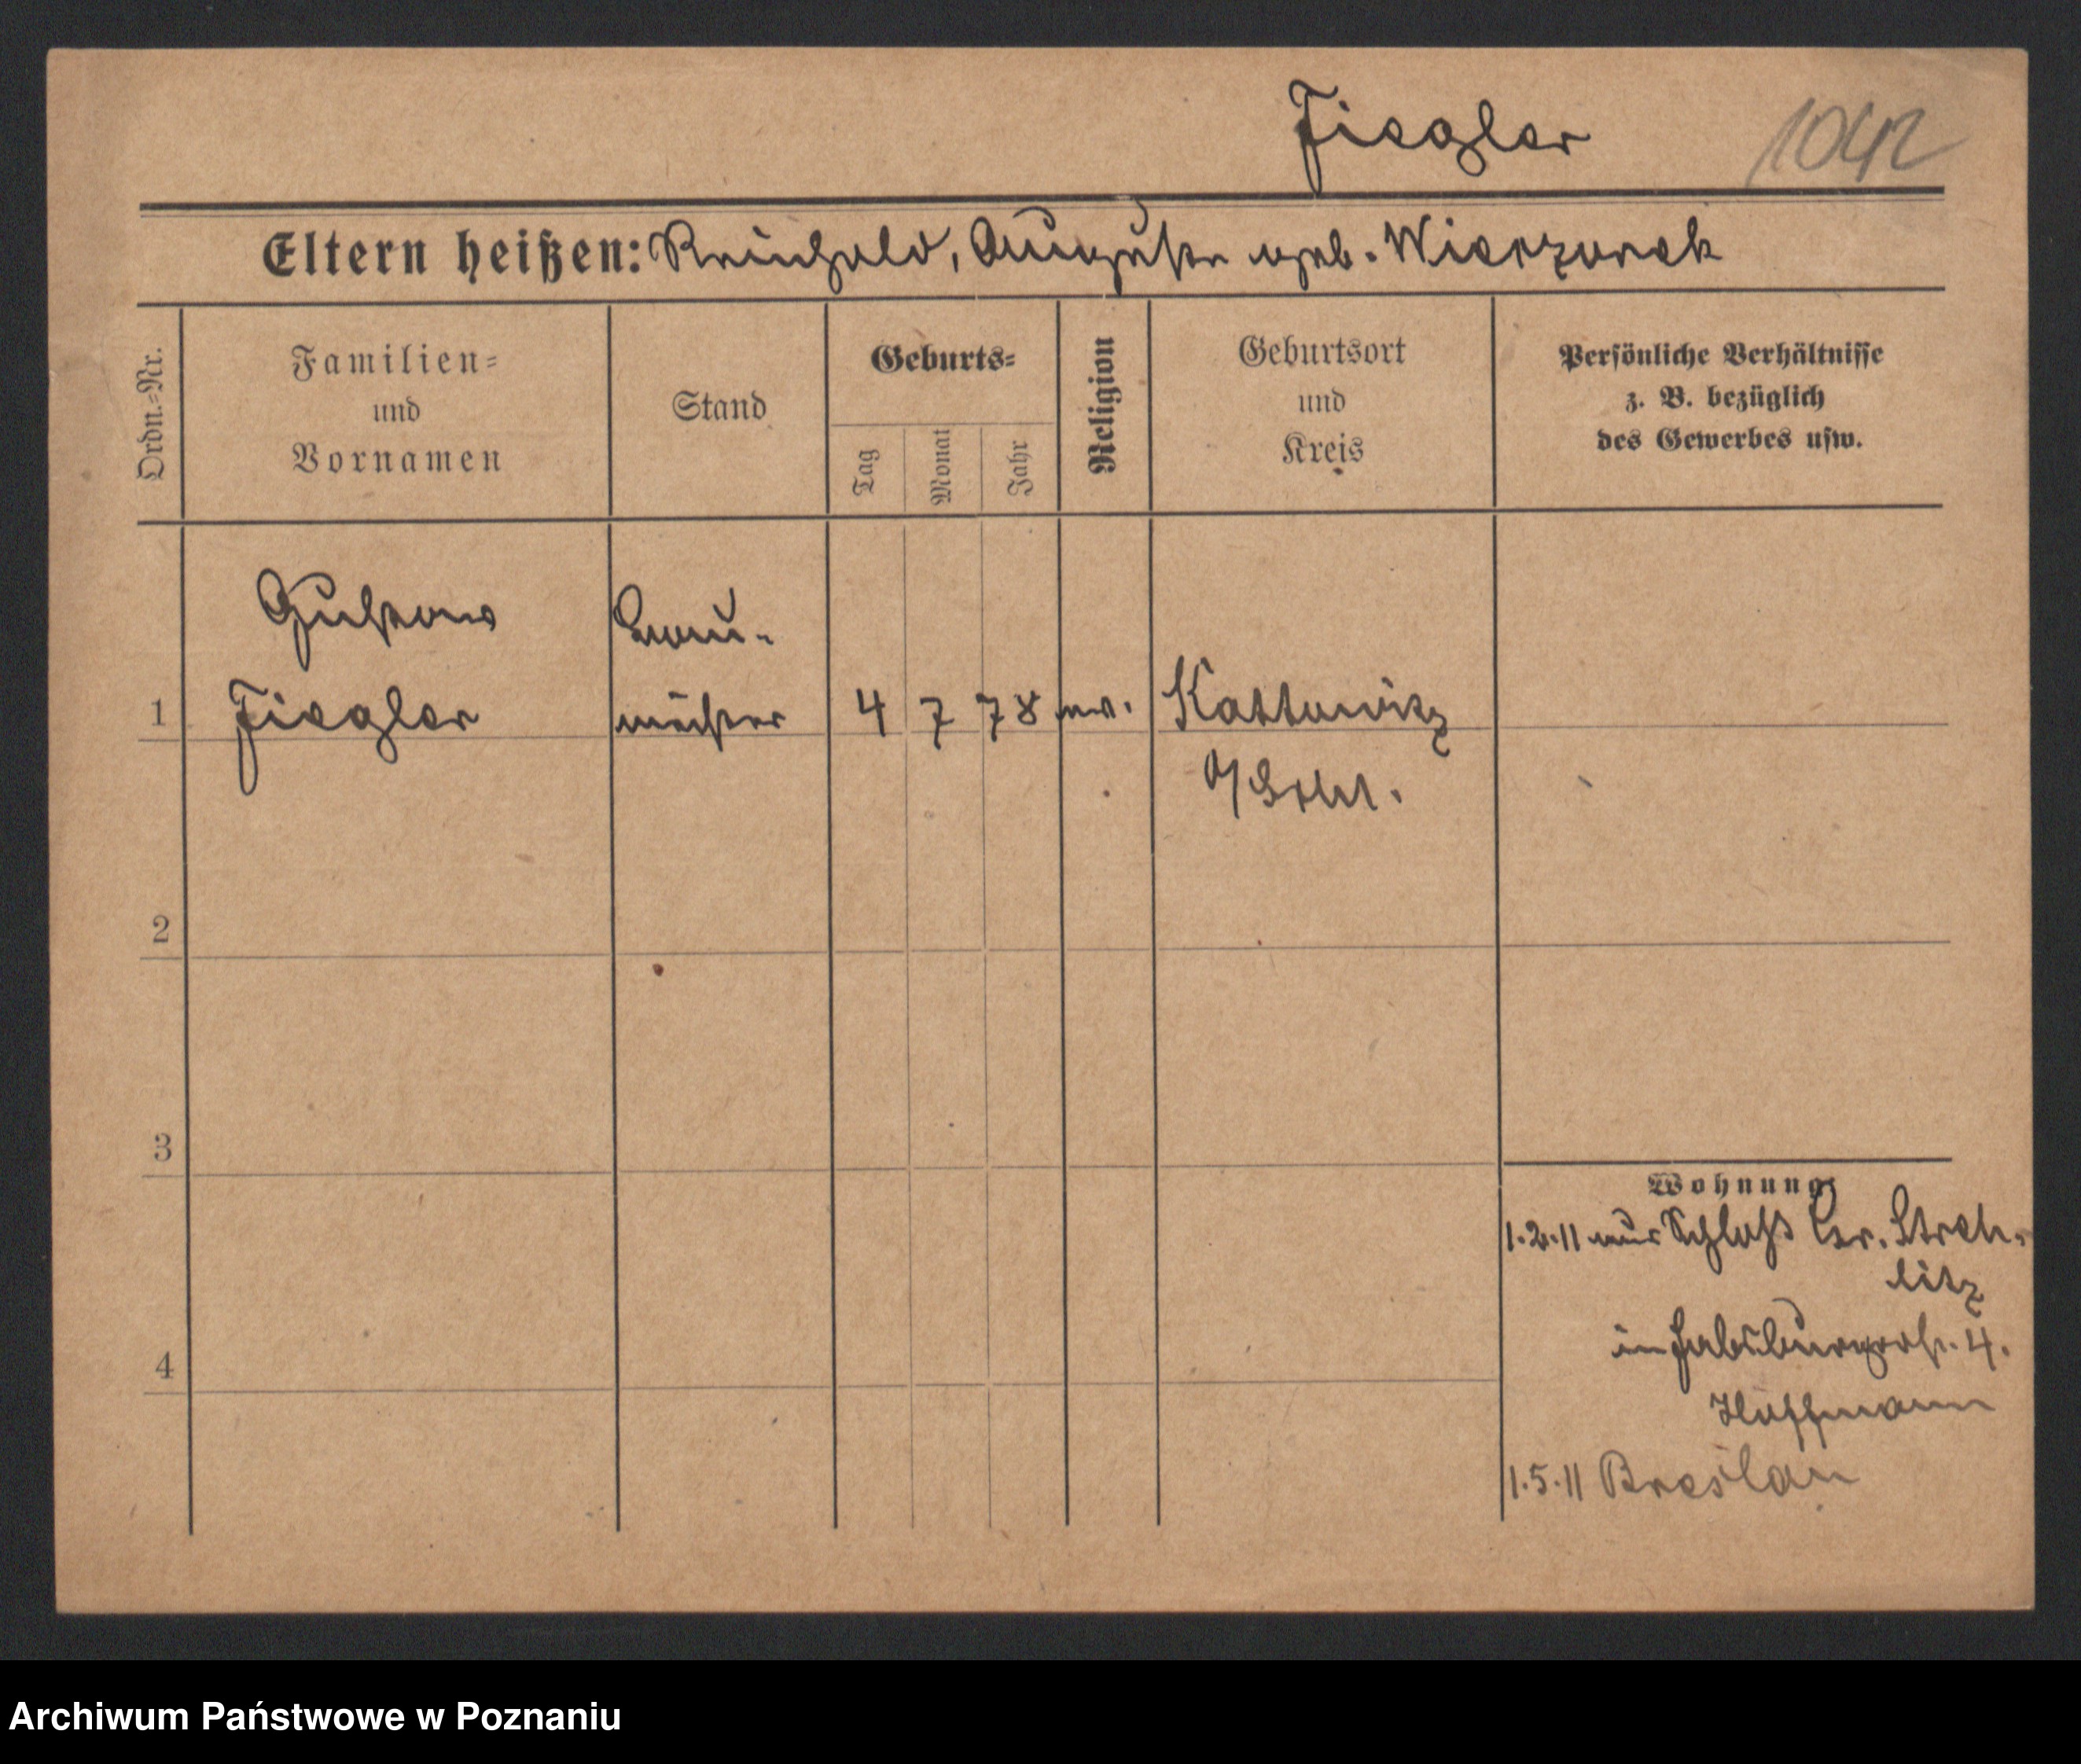 Ziegler 1042
Eltern heißen: Reinhold, Auguste geb. Wierzorek
Ordn.=Nr.
Familien=
und
Vornamen
Stand
Geburts=
Tag
Monat
Jahr
Religion
Geburtsort
und
Kreis
Persönliche Verhältnisse
z. B. bezüglich
des Gewerbes usw.
Gustav Bau-
1 Ziegler meister 4 7 78 ev. Kattowitz
O/Schl.
2
3
4
Wohnung:
1.2.11 aus Schloß Gr. Streh-
litz
in Habsburgerstr. 4.
Hoffmann
1.5.11 Breslau
Archiwum Państwowe w Poznaniu